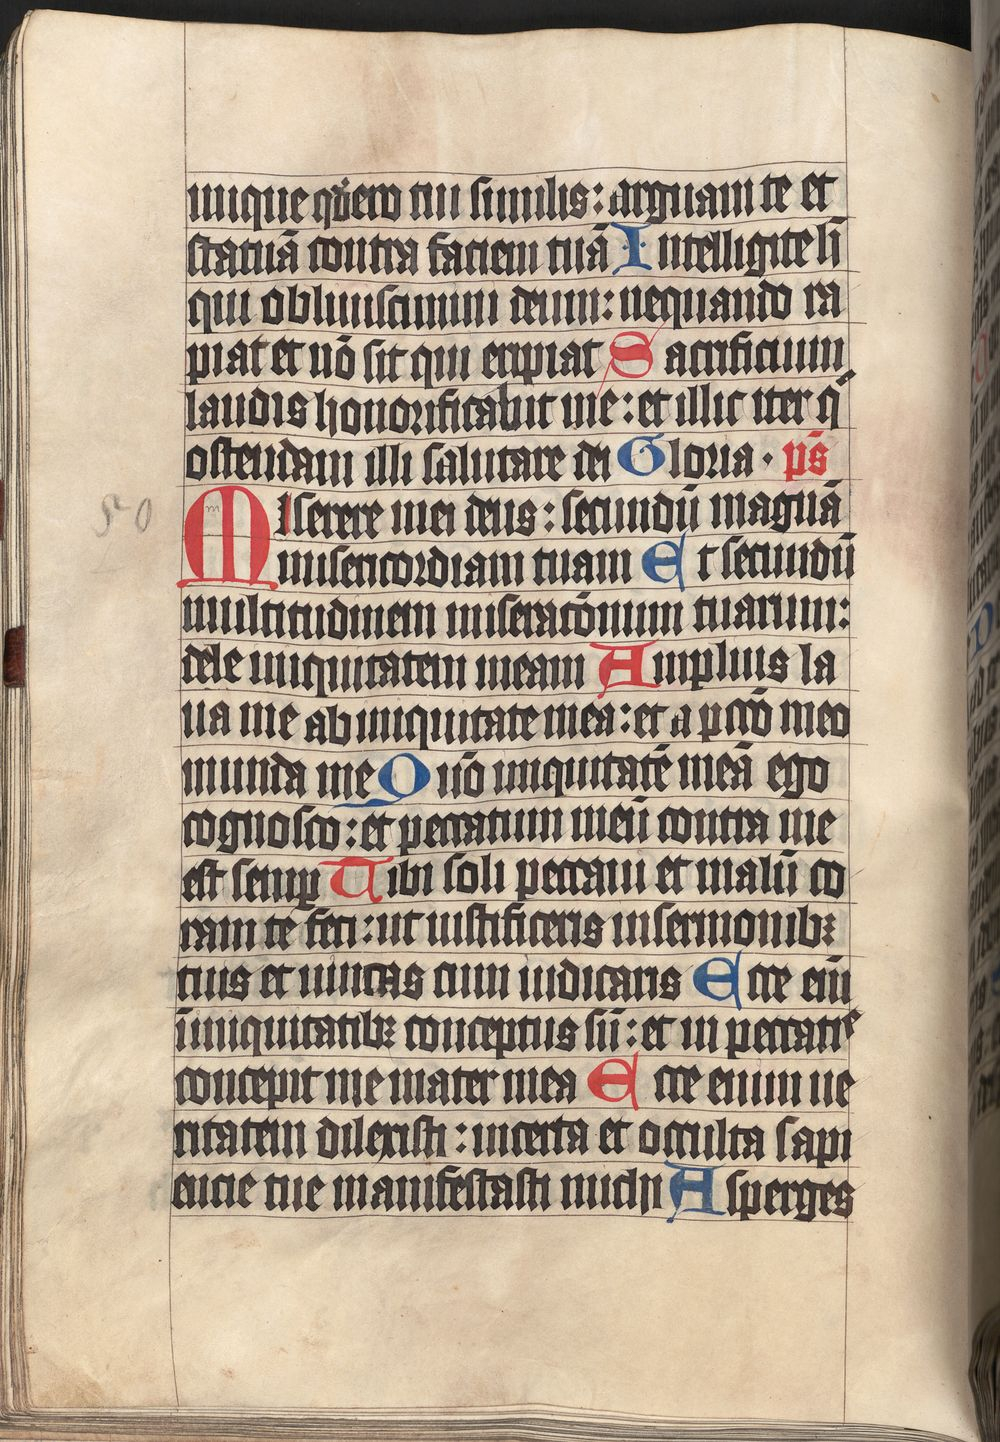 inique q̄ ero tui similis: arguam te et
statuā contra faciem tuā Intelligite h̄
qui obliuiscimini deum: nequando ra
piat et nō sit qui eripiat Sacrificium
laudis honorificabit me: et illic iter q̄
ostendam illi salutare dei Gloria · p̄s
Miserere mei deus: secundū magnā
misericordiam tuam Et secundū
multitudinem miseratōnum tuarum:
dele iniquitatem meam Amplius la
ua me ab iniquitate mea: et a pctō meo
munda me Qn̄o iniquitatē meā ego
cognosco: et peccatum meū contra me
est semꝑ Tibi soli peccaui et malū co
ram te feci: ut iustificeris in sermonibꝫ
tuis et uincas cum iudicaris Ecce eni̅
i̅ iniquitatibꝫ conceptus su̅: et in peccatis
concepit me mater mea Ecce enim ue
ritatem dilexisti: incerta et occulta sapi
encie tue manifestasti michi Asperges
50